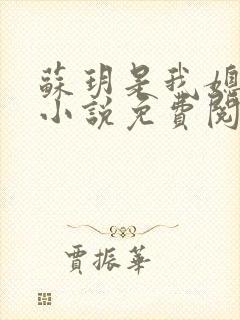 蘇玥是我媳
小說免費閱
賈振華